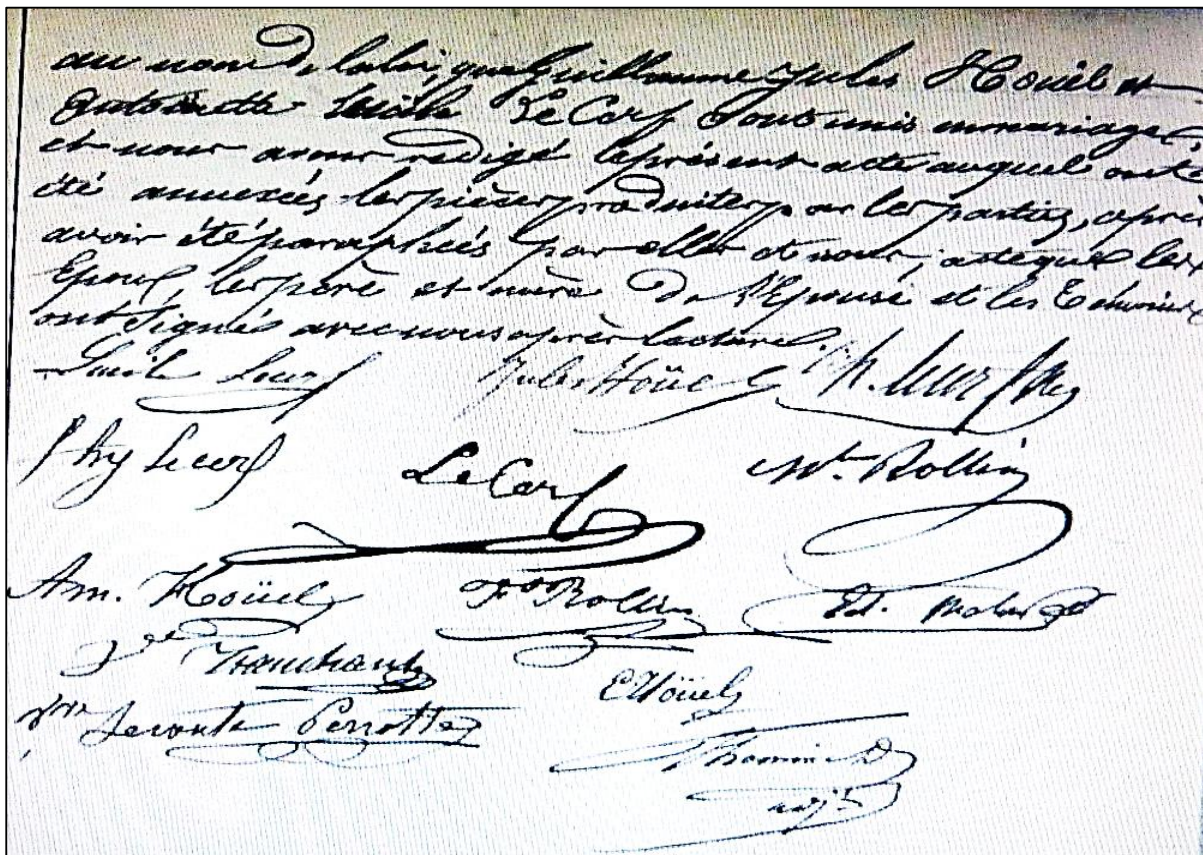 au nom de la loi, que Guillaume Jules Hoüel et
Antoinette Lucile Le Cerf sont unis en mariage,
et nous avons redigé le présent acte auquel ont
été annexées les pièces produites par les parties, après
avoir été paraphées par elles et nous, acte que les
Epoux, les père et mère de l'Epouse et les Témoins
ont signé avec nous après lecture.
Lucile Lecerf Jules Hoüel
Lecerf Le Cerf Rollin
Am. Hoüel Rollin Ed.
Tranchant E Hoüel
Leconte Perrotte
Thomine
adjt